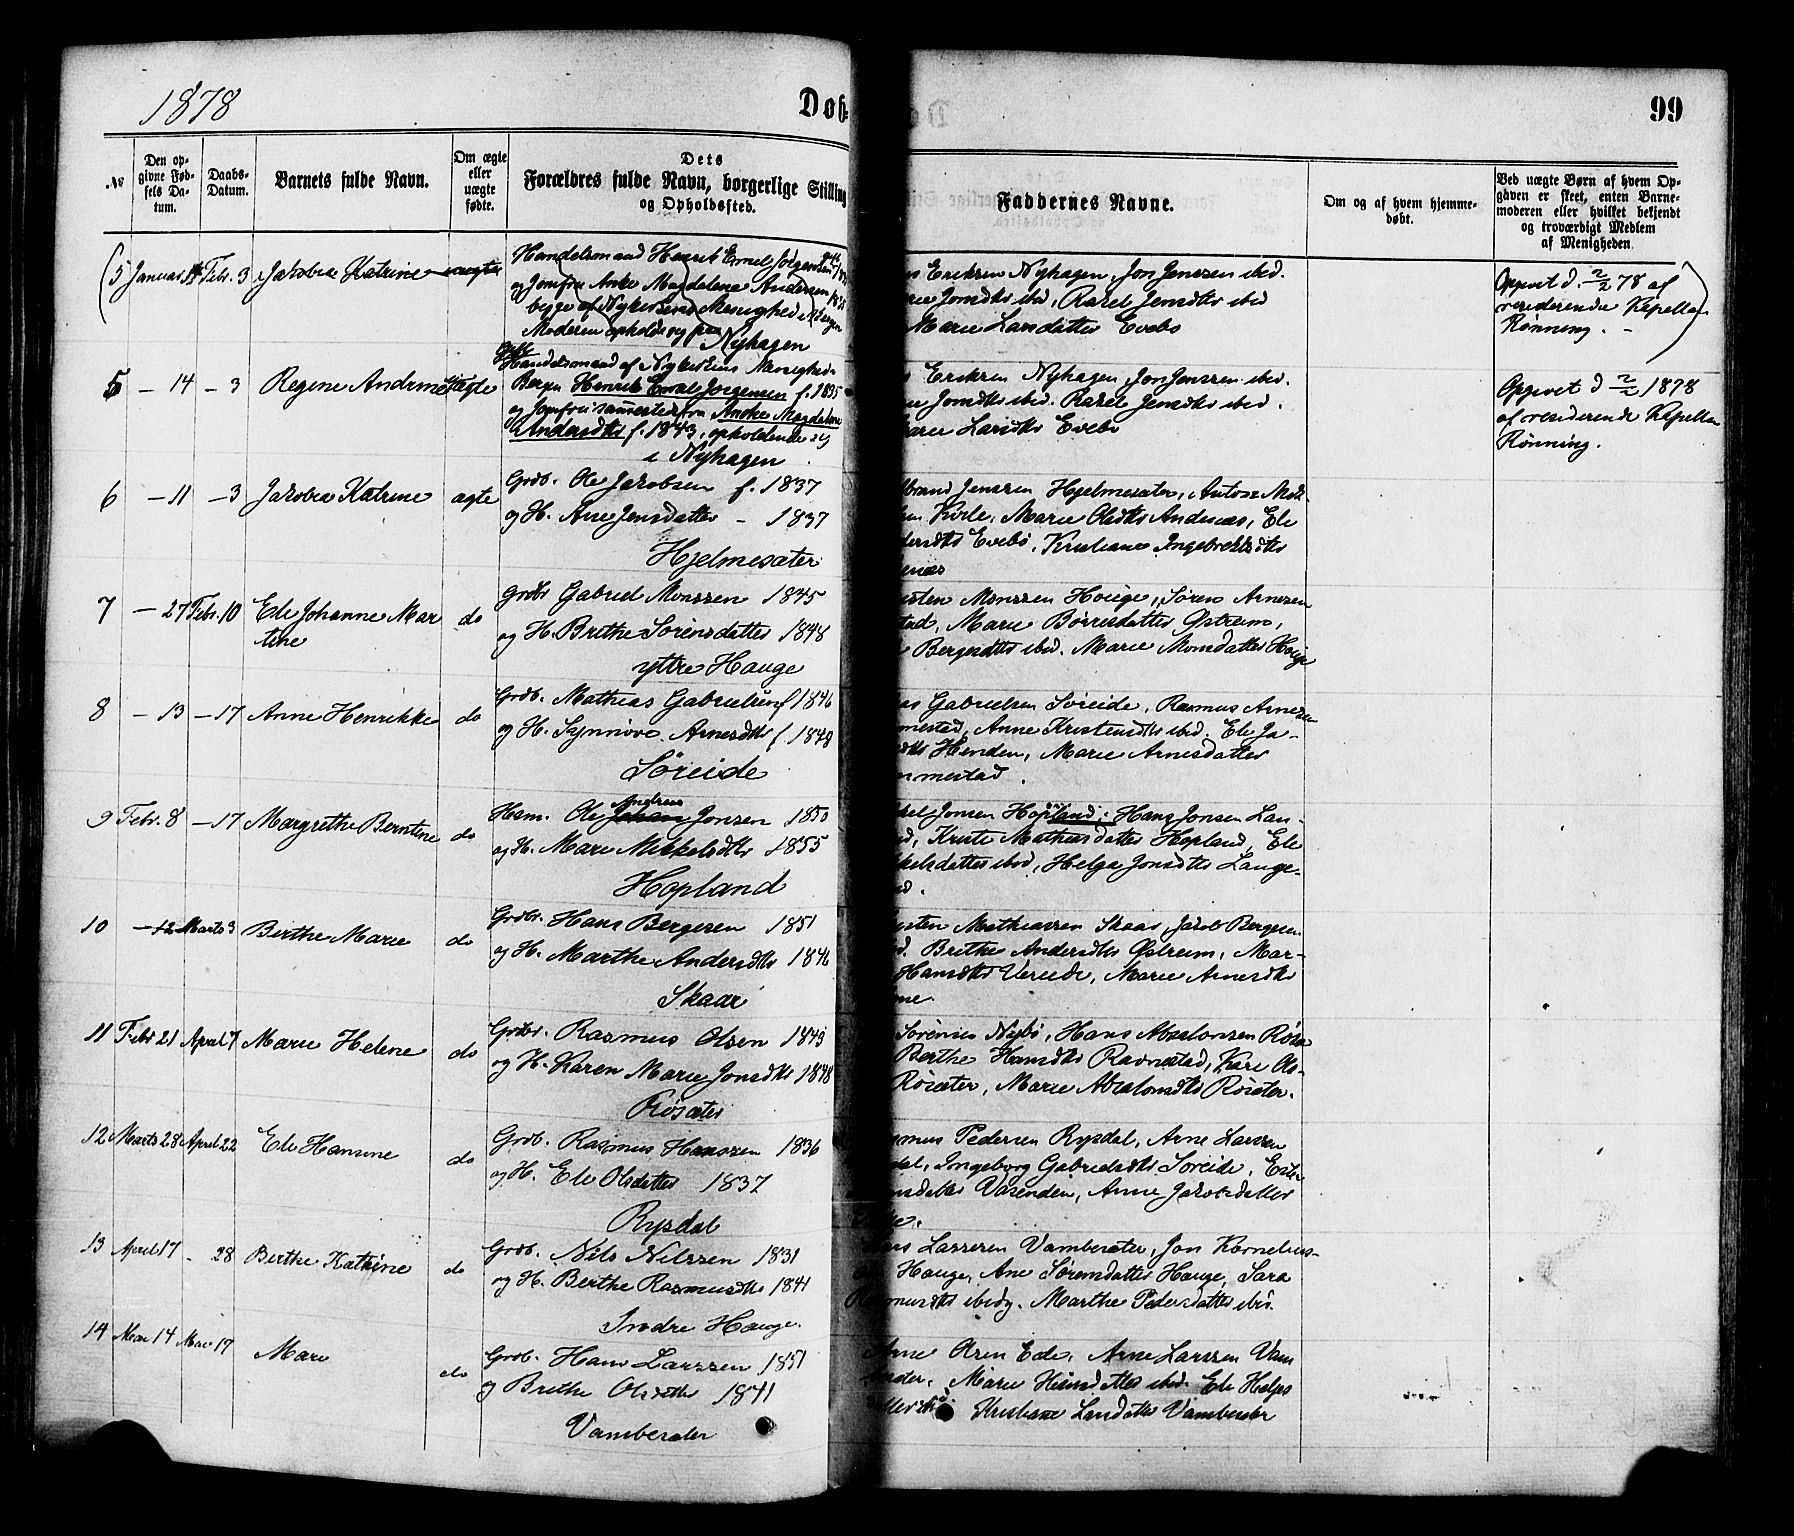 1878
Døb-
99
№
Den op-
givne Fød-
sels Da-
tum.
Daabs-
Datum.
Barnets fulde Navn.
Om ægte
eller
uægte
fødte.
Dets
Forældres fulde Navn, borgerlige Stilling
og Opholdssted.
Faddernes Navne.
Om og af hvem hjemme-
døbt.
Ved uægte Børn af hvem Op-
gaven er skeet, enten Barne-
moderen eller hvilket bekjendt
og troværdigt Medlem
af Menigheden.
(5 Januar 14 Febr. 3 Jakobia Katrine uægte
Handelsmand Henrik Emel Jørgensen
og Jomfru Anke Magdelena Andersen
begge af Nykirkens Menighed i Bergen
Moderen opholder sig paa
Nyhagen
Eriksen Nyhagen, Jon Jenssen ibid.
Jonsdtr ibid, Rakel Jensdtr ibid
Marie Larsdatter Evebø
Opgivet d. 2/2 78 af
residerende Kapellan
Rønning.)
5 – 14 – 3 Regine Andrine Uægte
gift
Handelsmand af Nykirkens Menighed
Bergen Henrik Emal Jørgensen f. 1835
og Jomfru sammestedsfra Anske Magdalene
Andersdtr f. 1843, opholdende sig
i Nyhagen
Eriksen Nyhagen, Jon Jenssen ibid.
Jonsdtr ibid. Rakel Jensdtr ibid.
Larsdtr Evebø
Opgivet d 2/2 1878
af residerende Kapellan
Rønning.
6 – 11 – 3 Jakobia Katrine ægte
Grdb. Ole Jakobsen f. 1837
og H. Ane Jensdatter – 1837
Hjelmesæter
brand Jenssen Hjelmesæter, Anton
Kirle, Marie Olsdtr Andenæs, Ele
Evebø, Kristiane Ingebrektsdtr
enæs
7 – 27 Febr. 10 Ele Johanne Mar
tine
do
Grdbr Gabriel Monssen 1845
og H. Brithe Sørensdatter 1848
yttre Hauge
Monssen Houge, Søren Arnesen
stad, Marie Børresdatter Østrem,
Bergesdtr ibid. Marie Monsdatter Houge
8 – 13 – 17 Anne Henrikke do
Grdb. Mathias Gabrielsen f 1846
og H. Synnøve Arnesdtr f 1848
Søreide
as Gabrielsen Søreide, Rasmus Arnesen
mestad, Anne Kristensdtr ibid. Ele Ja-
dtr Henden, Marie Arnesdatter
mmestad.
9 Febr. 8 – 17 Margrethe Berntine do
Andreas
Hsm. Ole Johan Jonsen 1850
og H. Mari Mikkelsdtr 1855
Hopland
kel Jonsen Hopland, Hans Jonsen Lan-
Kriste Mathiasdatter Hopland, Ele
kelsdatter ibid, Helga Jonsdtr Lange-
10 – 12 Marts 3 Berthe Marie do
Grdbr. Hans Bergesen 1851
og H. Marthe Andersdtr 1846
Skaar
Mathiassen Skaar, Jakob Bergesen
Brithe Andersdtr Østrem, Mar-
Hansdtr Vereide, Marie Arnesdtr
11 Febr 21 April 7 Marie Helene do
Grdbr. Rasmus Olsen 1843
og H. Karen Marie Jonsdtr 1848
Røsæter
Sørensen Nybø, Hans Absalonsen Røsæ
Berthe Hansdtr Ravnestad, Kari Ols-
Røsæter, Marie Absalonsdtr Røsæter.
12 Marts 28 April 22 Ele Hansine do
Grdb. Rasmus Hanssen 1836
og H. Ele Olsdatter 1837
Rygdal
mus Pedersen Rygdal, Arne Larssen
dal, Ingeborg Gabrielsdtr Søreide,
datter Vasenden, Anne Jakobsdatter
13 April 17 – 28 Berthe Katrine do
Grdb. Nils Nilssen 1831
og H. Berthe Rasmusdtr 1841
Indre Hauge.
Larssen Vambersæter, Jon Kornelius-
Hauge, Ane Sørensdatter Hauge, Sara
Rasmusdtr ibid. Marthe Pedersdatter ibid.
14 Mai 14 Mai 17 Mari do
Grdb. Hans Larssen 1851
og Brithe Olsdatter 1841
Vambesæter
Arne Olsen Ede, Arne Larssen Vam
Marie datter ibid. Ele Helges
Kristiane Larsdatter Vambesæter